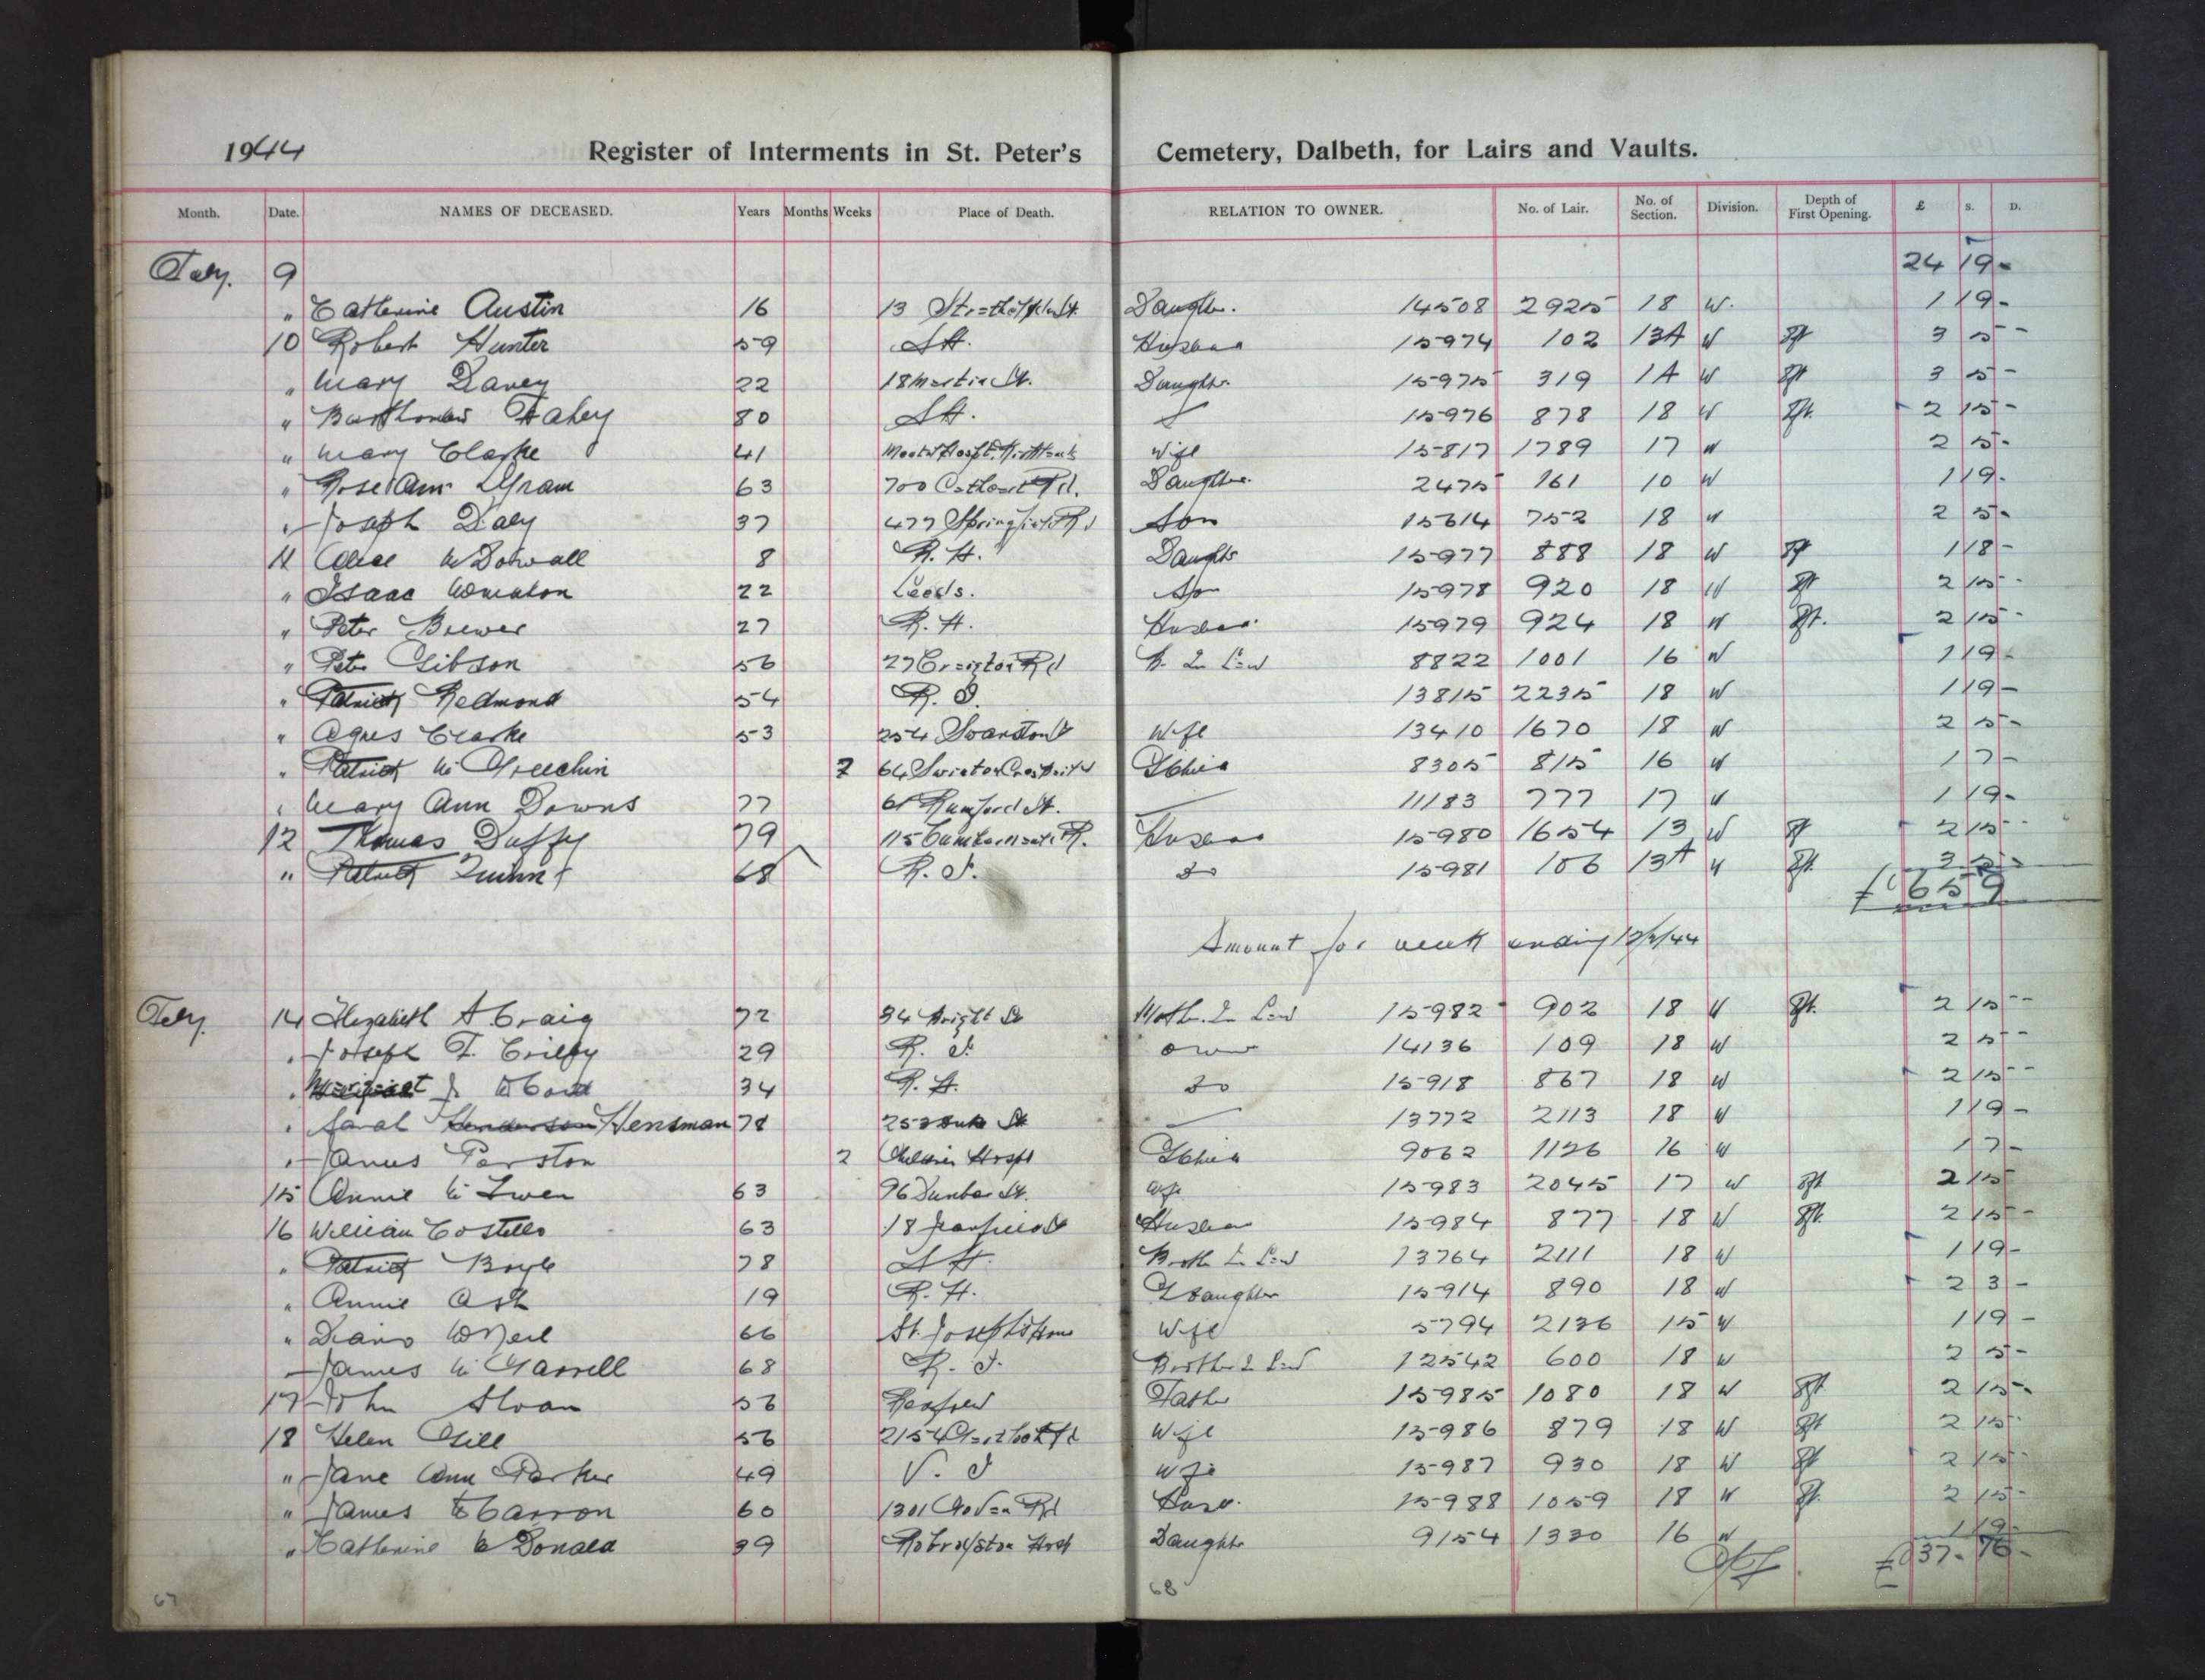 1944 Register of Interments in St. Peter's Cemetery, Dalbeth, for Lairs and Vaults.
Month. Date. NAMES OF DECEASED. Years Months Weeks Place of Death. RELATION TO OWNER. No. of Lair. No. of Section. Division. Depth of First Opening. £ S. D.
Feby. 9 24 19 -
" Catherine Austin 16 13 St. Daughter. 14508 2925 18 W. 1 19 -
10 Robert Hunter 59 S.H. Husband 15974 102 13A W 8ft 3 5 -
" Mary Davey 22 18 Martin St. Daughter 15975 319 1A W 8ft 3 5 -
" Bartholomew Fahey 80 S.H. 15976 878 18 W 8ft. 2 15 -
" Mary Clarke 41 Wife 15817 1789 17 W 2 5 -
" Rose Ann 63 700 Cathcart Rd. Daughter 2475 161 10 W 1 19 -
" Joseph Daly 37 477 Springfield Rd Son 15614 752 18 W 2 5 -
11 Alice McDowall 8 R.H. Daughter 15977 888 18 W 8ft 1 18 -
" Isaac 22 Leeds. Son 15978 920 18 W 8ft 2 15 -
" Peter Brewer 27 R.H. Husband 15979 924 18 W 8ft. 2 15 -
" Peter Gibson 56 27 Craigton Rd B. In Law 8822 1001 16 W 1 19 -
" Patrick Redmond 54 R.I. 13815 2235 18 W 1 19 -
" Agnes Clarke 53 254 Swanston St Wife 13410 1670 18 W 2 5 -
" Patrick McGeechin 2 64 Swinton GChild 8305 815 16 W 1 7 -
" Mary Ann Downs 77 61 Rumford St. 11183 777 17 W 1 19 -
12 Thomas Duffy 79 115 Cumbernauld R. Husband 15980 1654 13 W 8ft 2 15 -
" Patrick Quinn 68 R.I. Do 15981 106 13A W 8ft. 3 5 -
£ 65 9
Amount for week ending 12/2/44
Feby. 14 Elizabeth A Craig 72 34 Bright St Mother In Law 15982 902 18 W 8ft. 2 15 -
" Joseph F. Crilly 29 R.I. Owner 14136 109 18 W 2 5 -
" Margaret J. 34 R.H. Do 15918 867 18 W 2 15 -
" Sarah Henderson Hensman 78 St 13772 2113 18 W 1 19 -
" James Parston 2 Children Hospt GChild 9062 1126 16 W 1 7 -
15 Annie McEwen 63 96 Dunbar St. Wife 15983 2045 17 W 8ft 2 15
16 William Costello 63 18 St Husband 15984 877 18 W 8ft. 2 15 -
" Patrick Boyle 78 S.H. Brother In Law 13764 2111 18 W 1 19 -
" Annie Ash 19 R.H. GDaughter 15914 890 18 W 2 3 -
" McNeil 66 St. Josephs Home Wife 5794 2136 15 W 1 19 -
James McGarrell 68 R.I. Brother In Law 12542 600 18 W 2 5 -
17 John Sloan 56 Renfrew Father 15985 1080 18 W 8ft 2 15 -
18 Helen Gill 56 2154 Rd Wife 15986 879 18 W 8ft 2 15 -
" Jane Ann Parker 49 V.I Wife 15987 930 18 W 8ft 2 15 -
" James 60 1301 Govan Rd Husb. 15988 1059 18 W 8ft. 2 15 -
" Catherine McDonald 39 Robroyston Hosp Daughter 9154 1330 16 W 1 19 -
C/F £ 37 - 16 -
67 68